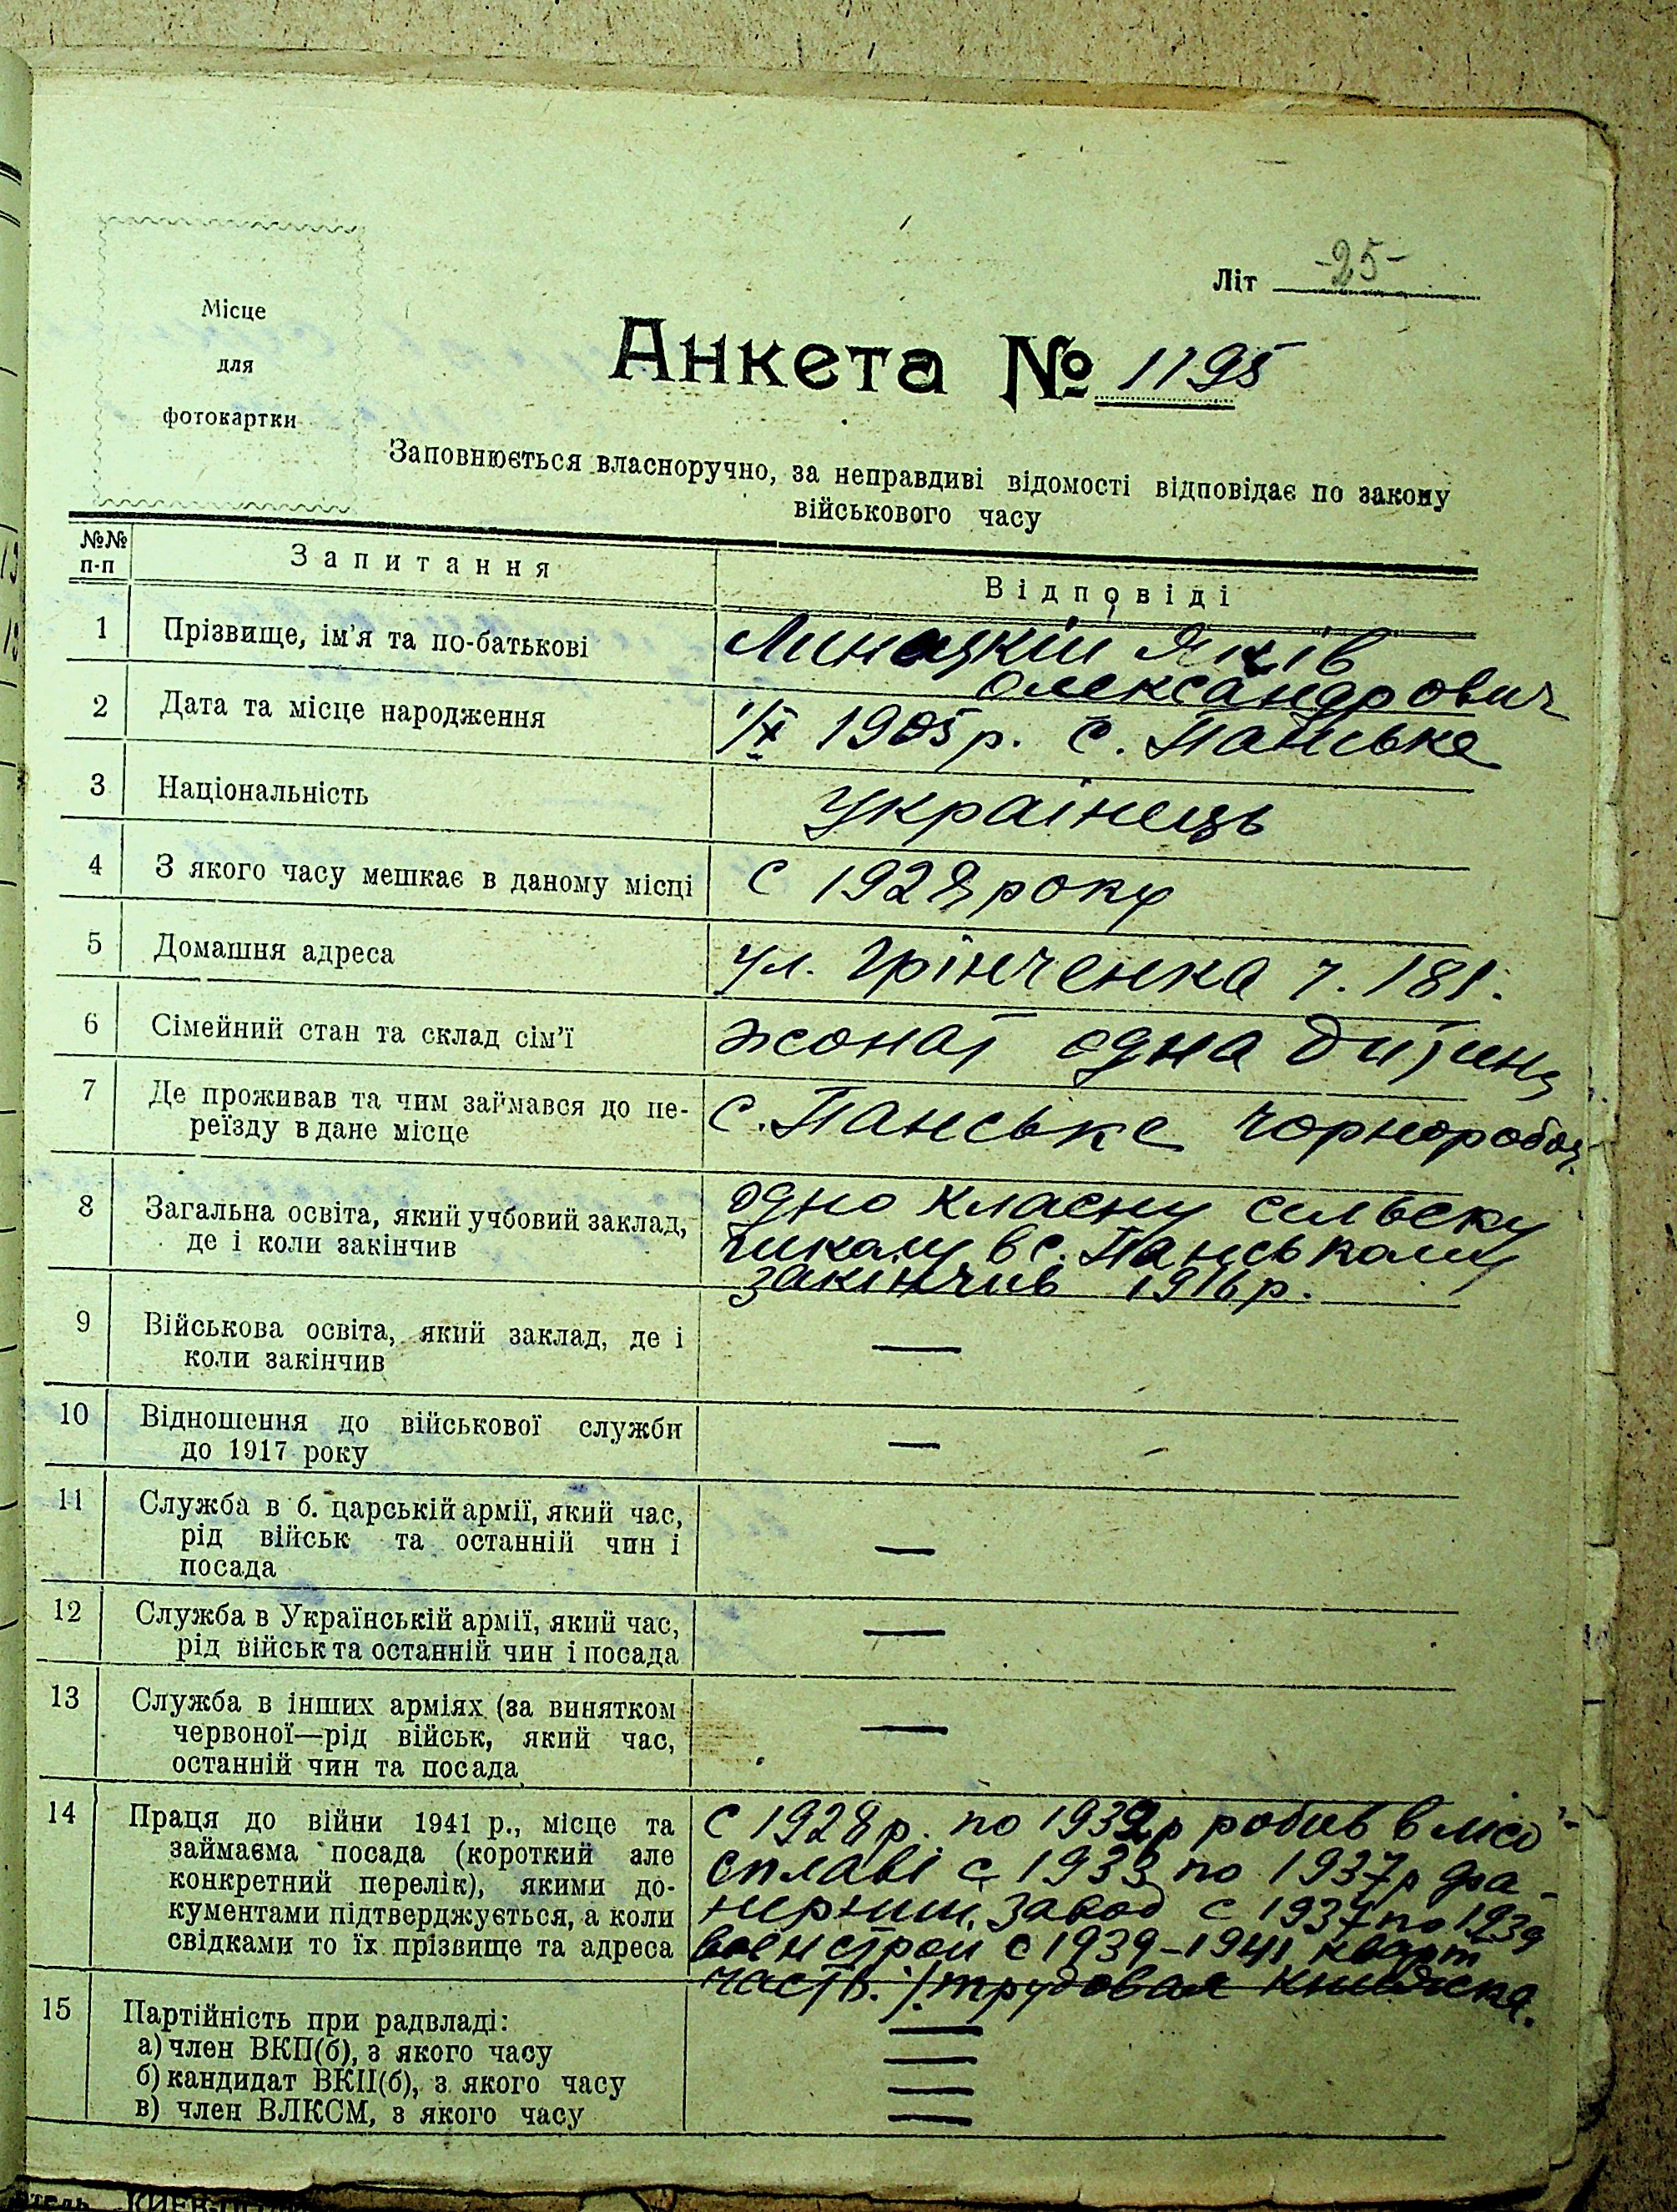 Літ -25-
Місце
для
фотокартки
Анкета № 1195
Заповнюється власноручно, за неправдиві відомості відповідає по закону
військового часу
№№ п-п
Запитання
Відповіді
1
Прізвище, ім'я та по-батькові
Линацкій Яків
Олександрович
2
Дата та місце народження
1/X 1905 р. с. Панське
3
Національність
Українець
4
З якого часу мешкає в даному місці
С 1928 року
5
Домашня адреса
ул. Грінченка ч. 181.
6
Сімейний стан та склад сім'ї
жонат одна дитина
7
Де проживав та чим займався до пе-
реїзду в дане місце
с. Панське чорнороboч.
8
Загальна освіта, який учбовий заклад,
де і коли закінчив
одно класну сельску
школу в с. Панському
закінчив 1916 р.
9
Військова освіта, який заклад, де і
коли закінчив
—
10
Відношення до військової служби
до 1917 року
—
11
Служба в б. царській армії, який час,
рід військ та останній чин і
посада
—
12
Служба в Українській армії, який час,
рід військ та останній чин і посада
—
13
Служба в інших арміях (за винятком
червоної—рід військ, який час,
останній чин та посада
—
14
Праця до війни 1941 р., місце та
займаєма посада (короткий але
конкретний перелік), якими до-
кументами підтверджується, а коли
свідками то їх прізвище та адреса
С 1928 р. по 1932 р робив в лісо
сплаві с 1933 по 1937 р фа-
нерний завод с 1937 по 1939
военстрои с 1939-1941 кварт
часть. /. трудовая книжка.
15
Партійність при радвладі:
—
а) член ВКП(б), з якого часу
—
б) кандидат ВКП(б), з якого часу
—
в) член ВЛКСМ, з якого часу
—